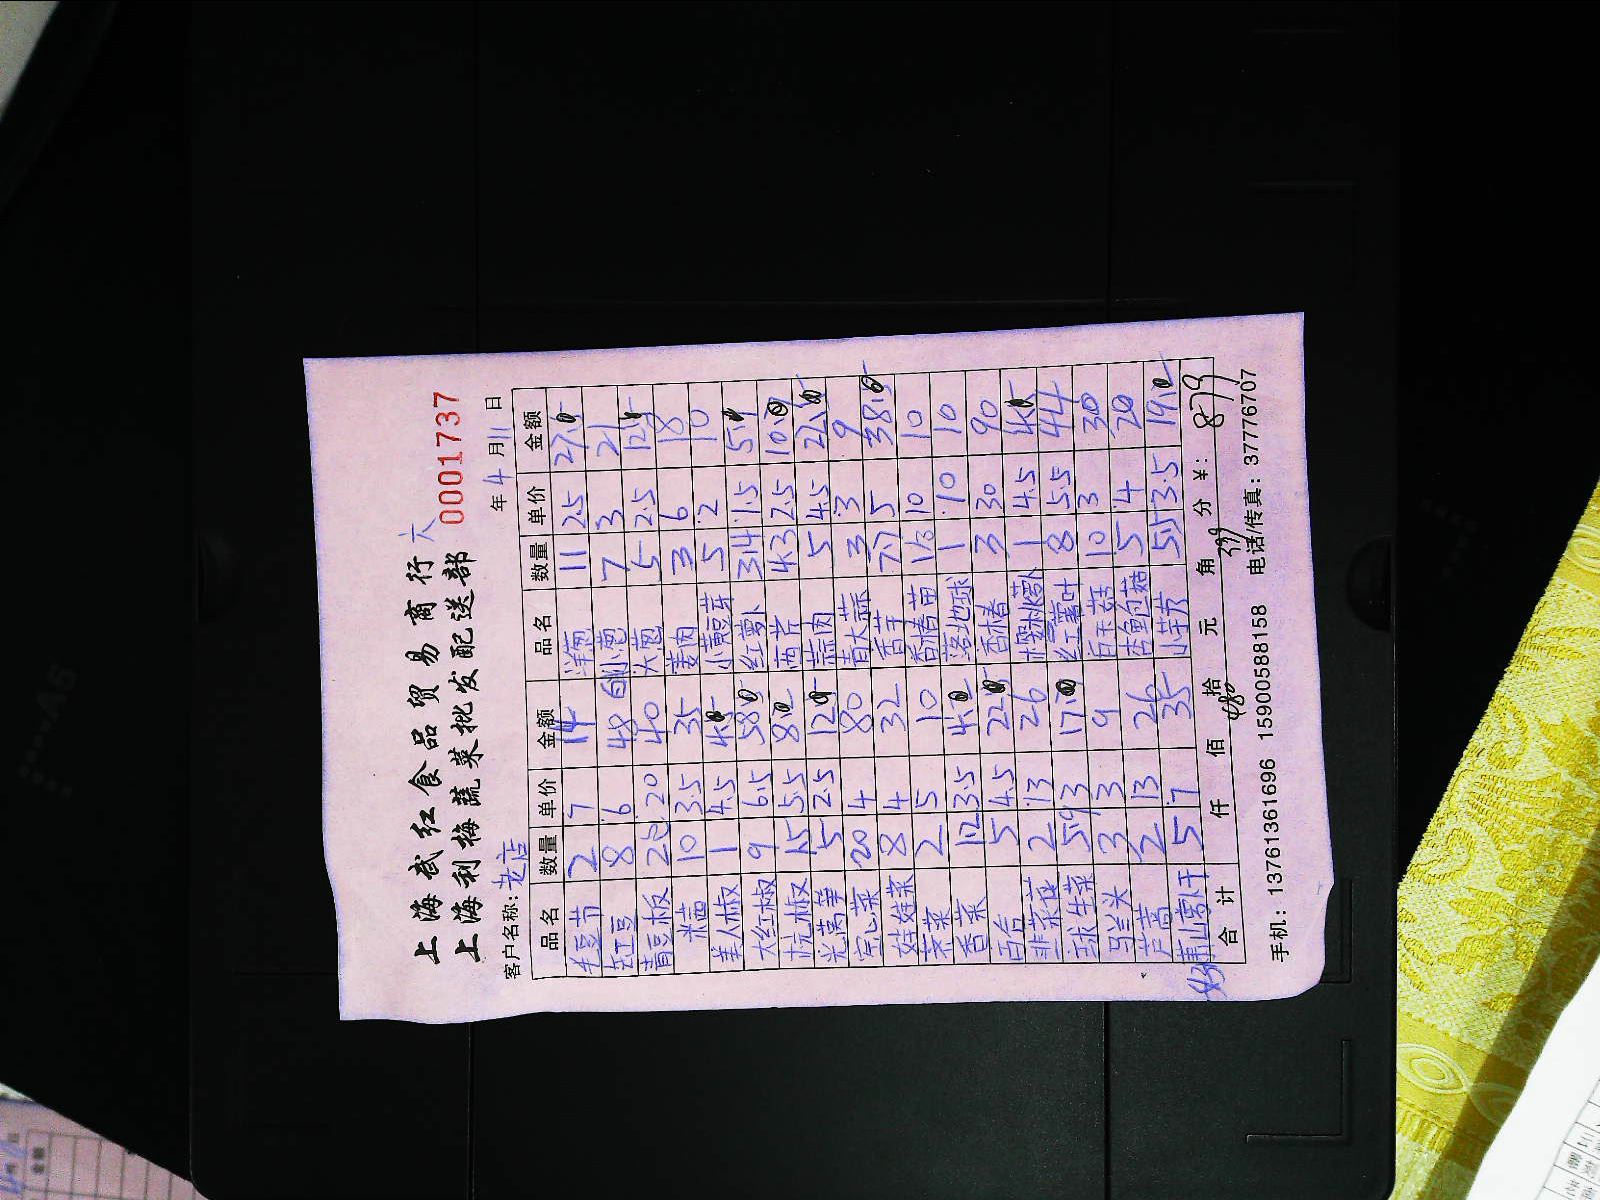 上海武红食品贸易商行 六
上海利梅蔬菜批发配送部 0001737
客户名称：老店 年4月11日
品名 数量 单价 金额 品名 数量 单价 金额
毛豆节 2 7 14 洋葱 11 2.5 27
豇豆 8 6 48 小葱 7 3 21
青豆板 2 20 40 大葱 5 2.5 12.5
米苋 10 3.5 35 姜肉 3 6 18
美人椒 1 4.5 4 小黄豆芽 5 2 10
大红椒 9 6.5 58 红萝卜 3.4 1.5 5
杭椒 1.5 5.5 8 西芹 4.3 2.5 10
光莴笋 5 2.5 12 蒜肉 5 4.5 22
空心菜 20 4 80 青大蒜 3 3 9
娃娃菜 8 4 32 香芋 7.7 5 38
荠菜 2 5 10 香椿苗 1/3 10 10
香菜 1.2 3.5 4 落地球 1 10 10
百合 5 4.5 22 香椿 3 30 90
韭菜花 2 13 26 樱桃萝卜 1 4.5 4
球生菜 5.9 3 17 红薯叶 8 5.5 44
马兰头 3 3 9 白玉菇 10 3 30
芦蒿 2 13 26 杏鲍菇 5 4 20
萧山萝卜干 5 7 35 小芋艿 5.5 3.5 19
合计 仟 佰 拾 元 角 分 ¥：879
480 399
手机：13761361696 15900588158 电话/传真：37776707